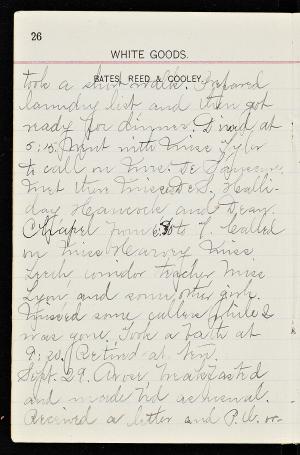 26
WHITE GOODS.
BATES, REED & COOLEY.
took a short walk. Prepared
laundry list and then got
ready for dinner. Dined at
5:15. Went with Miss Tyler
to call on Mme. De
Met there Misses De S. Halli-
day Hancock and Dean.
Chapel from 6:30 to 7. Called
on Miss Harvey Miss
Leech, corridor teacher Miss
Lyon, and some other girls.
Missed some callers while I
was gone. Took a bath at
9:20. Retired at ten.
Sept. 29. Arose, breakfasted
and made bed as usual.
Received a letter and P.C. or